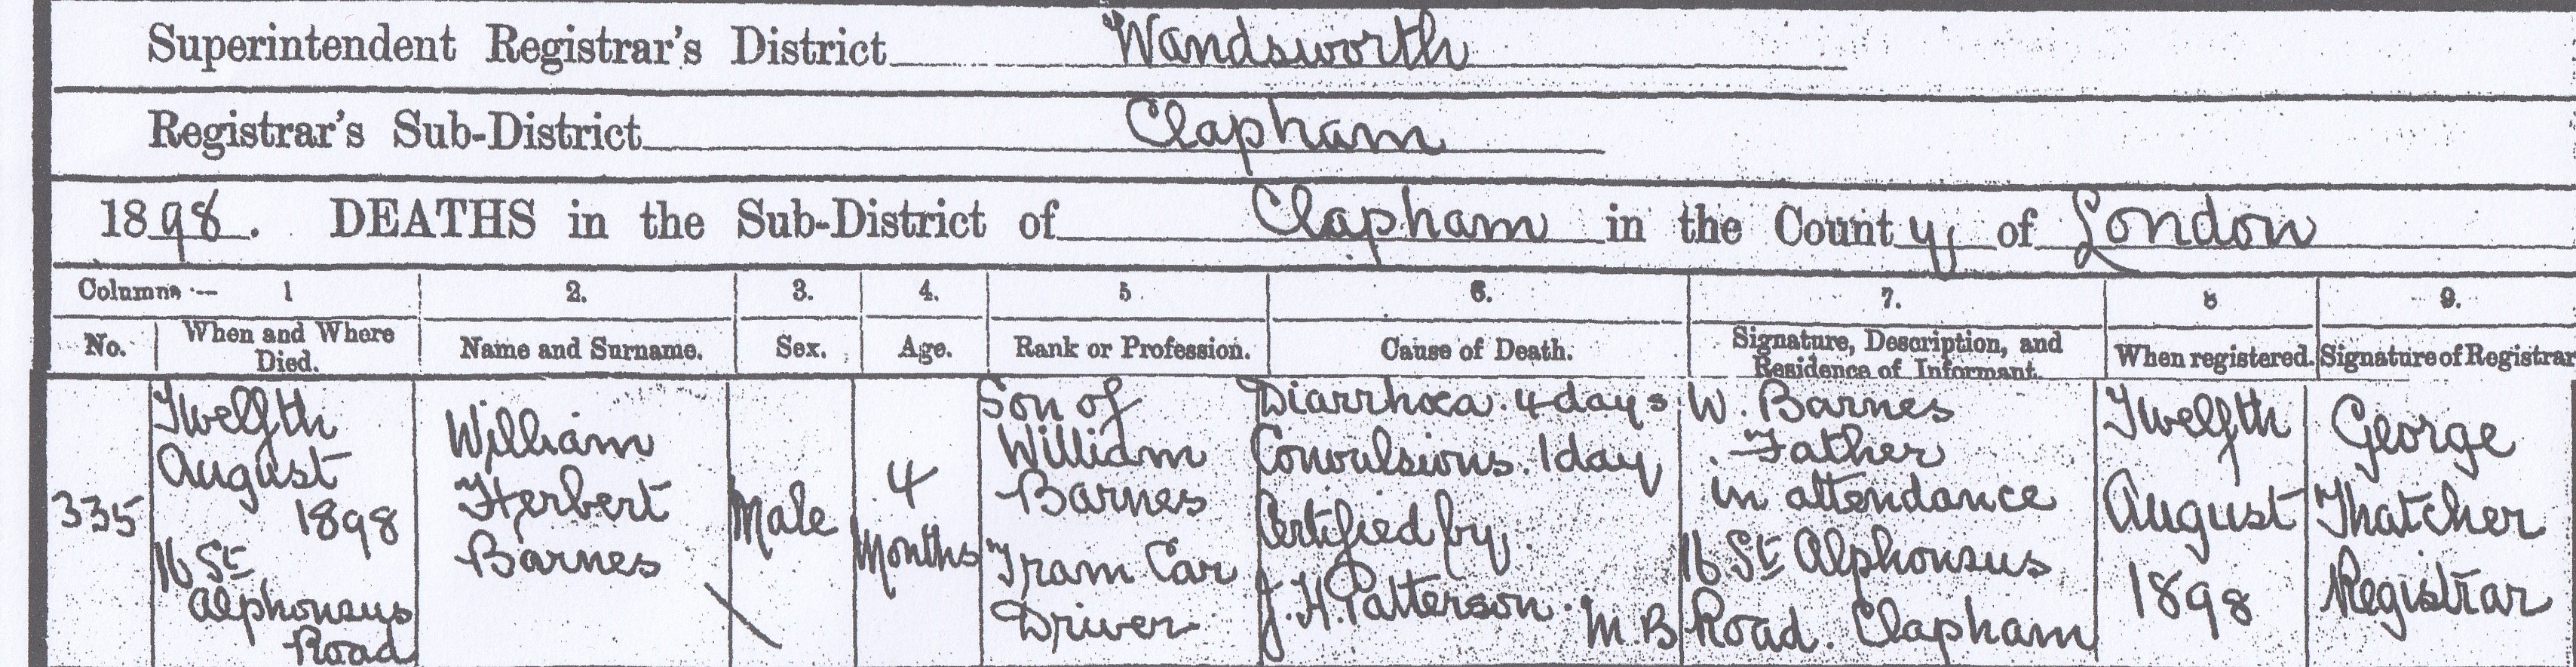 Superintendent Registrar's District Wandsworth
Registrar's Sub-District Clapham
1898. DEATHS in the Sub-District of Clapham in the County of London
Columns :— 1 2. 3. 4. 5 6. 7. 8 9.
No. When and Where Died. Name and Surname. Sex. Age. Rank or Profession. Cause of Death. Signature, Description, and Residence of Informant. When registered. Signature of Registrar
335
Twelfth
August
1898
16 St
Alphonsus
Road
William
Herbert
Barnes
Male
4
Months
Son of
William
Barnes
Tram Car
Driver
Diarrhoea. 4 days
Convulsions. 1 day
Certified by
J. H. Patterson. M.B
W. Barnes
Father
in attendance
16 St Alphonsus
Road. Clapham
Twelfth
August
1898
George
Thatcher
Registrar